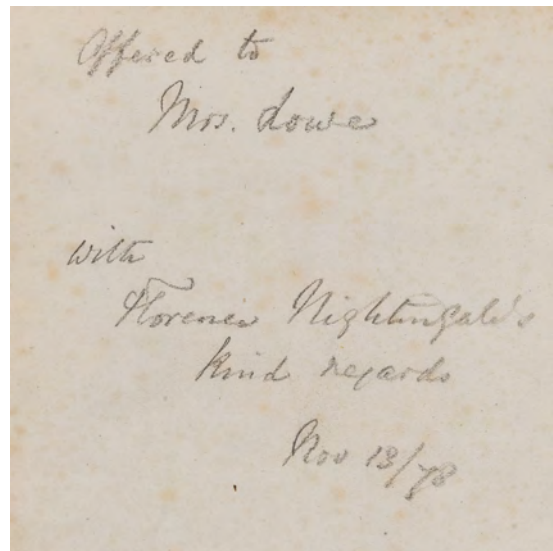 Offered to
Mrs. Lowe
with
Florence Nightingale's
kind regards
Nov 13/78